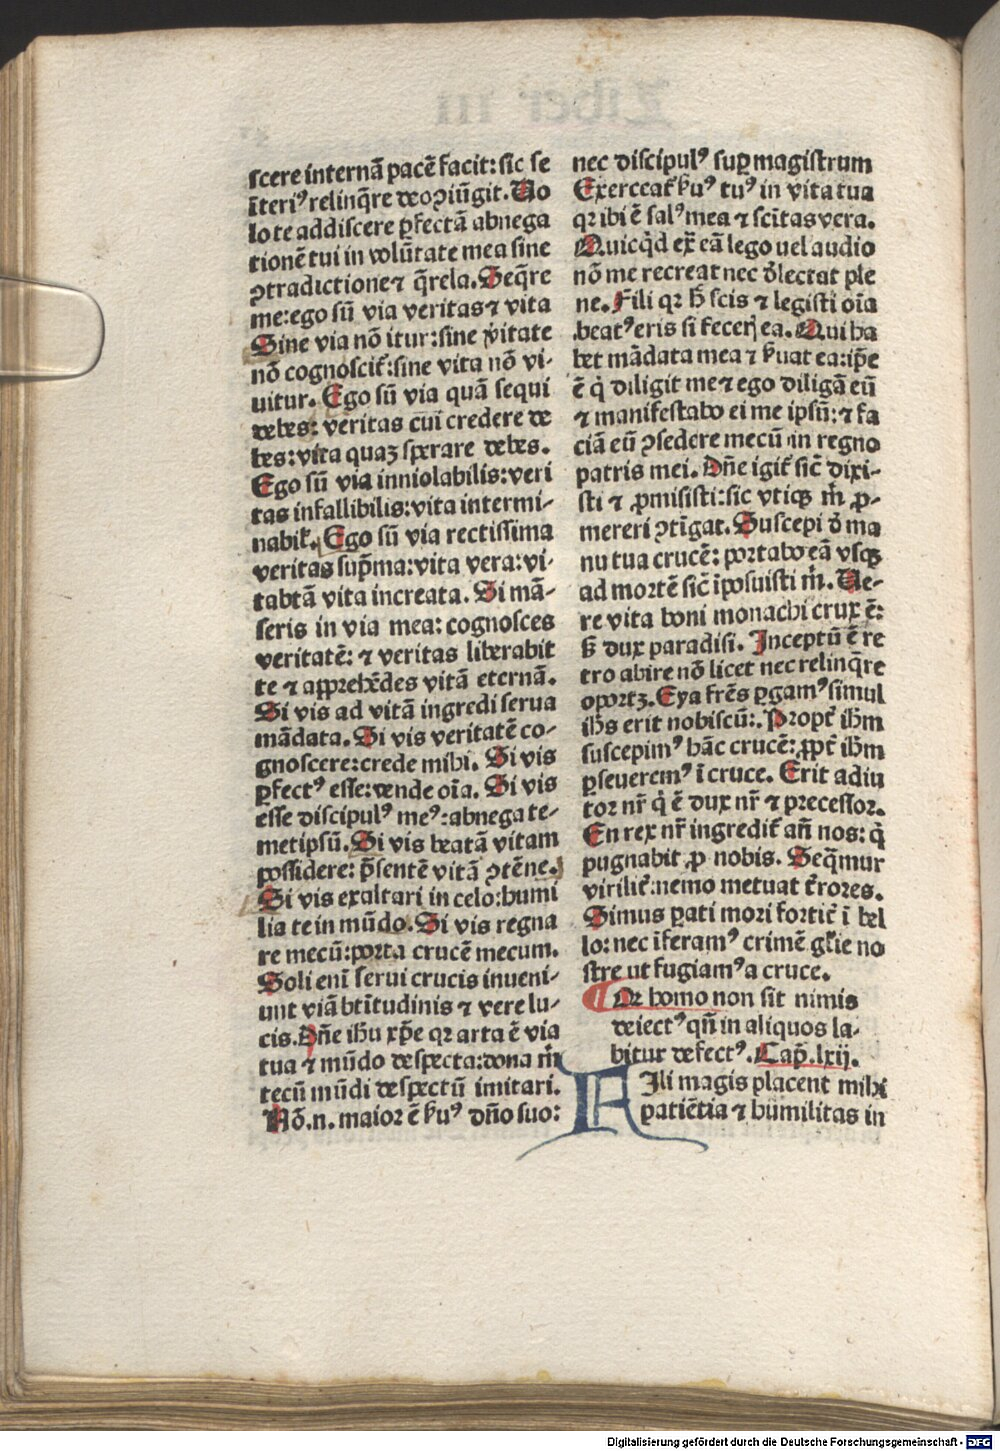 scere internā pacē facit: sic se
īteriꝰ relinq̄re deo ꝯiūgit. Uo
lo te addiscere ꝑfectā abnega
tionē tui in volūtate mea sine
ꝯtradictione ⁊ q̄rela. Seq̄re
me: ego sū via veritas ⁊ vita
Sine via nō itur: sine v̄itate
nō cognoscit᷑: sine vita nō vi-
uitur. Ego sū via quā sequi
debes: veritas cui credere de
bes: vita quaꝫ sperare debes.
Ego sū via inniolabilis: veri
tas infallibilis: vita intermi-
nabil᷑. Ego sū via rectissima
veritas sup̄ma: vita vera: vi-
tabtā vita increata. Si mā-
seris in via mea: cognosces
veritatē: ⁊ veritas liberabit
te ⁊ apprehēdes vitā eternā.
Si vis ad vitā ingredi serua
mādata. Si vis veritatē co-
gnoscere: crede mihi. Si vis
ꝑfectꝰ esse: vende oīa. Si vis
esse discipulꝰ meꝰ: abnega te-
metipsū. Si vis beatā vitam
possidere: p̄sentē vitā ꝯtēne.
Si vis exaltari in celo: humi
lia te in mūdo. Si vis regna
re mecū: porta crucē mecum.
Soli eni serui crucis inueni-
unt viā btītudinis ⁊ vere lu-
cis. Dn̄e ihū xp̄e qꝛ arta ē via
tua ⁊ mūdo despecta: dona m̄
tecū mūdi despectū imitari.
Nō.n. maior ē ẜuꝰ dn̄o suo:
nec discipulꝰ suꝑ magistrum
Exerceat᷑ ẜuꝰ tuꝰ in vita tua
qꝛ ibi ē salꝰ mea ⁊ scītas vera.
Quicq̄d ex̄ eā lego uel audio
nō me recreat nec d̄lectat ple
ne. Fili qꝛ h̄ scis ⁊ legisti oīa
beatꝰ eris si fecerꝭ ea. Qui ha
bet mādata mea ⁊ ẜuat ea: ip̄e
ē q̄ diligit me ⁊ ego diligā eū
⁊ manifestabo ei me ipsū: ⁊ fa
ciā eū ꝯsedere mecū in regno
patris mei. Dn̄e igit᷑ sic̄ dixi-
sti ⁊ ꝓmisisti: sic vtiqꝫ m̄ ꝓ-
mereri ꝯtīgat. Suscepi d̄ ma
nu tua crucē: portabo eā vsqꝫ
ad mortē sic̄ īposuisti m̄. Ue-
re vita boni monachi crux ē:
ẜ dux paradisi. Inceptū ē re
tro abire nō licet nec relinq̄re
oportꝫ. Eya frēs ꝑgamꝰ simul
ihūs erit nobiscū: Propt᷑ ihm̄
suscepimꝰ hāc crucē: ꝓpt᷑ ihm̄
ꝑseueremꝰ ī cruce. Erit adiu
tor nr̄ q̄ ē dux nr̄ ⁊ precessor.
En rex nr̄ ingredit᷑ an̄ nos: q̄
pugnabit ꝓ nobis. Seq̄mur
virilit᷑: nemo metuat t᷑rores.
Simus ꝑati mori fortit᷑ ī bel
lo: nec īferamꝰ crimē gl̄ie no
stre ut fugiamꝰ a cruce.
¶ Qꝛ homo non sit nimis
deiectꝰ qn̄ in aliquos la-
bitur defectꝰ. Cap̄. lxij.
FIli magis placent mihi
patiētia ⁊ humilitas in
Digitalisierung gefördert durch die Deutsche Forschungsgemeinschaft - DFG